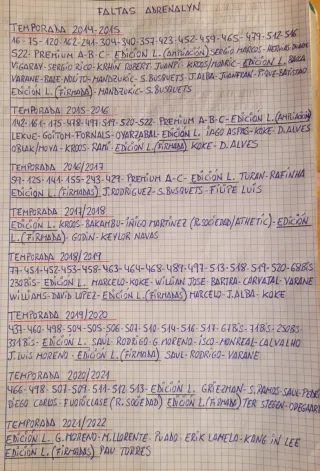 FALTAS ADRENALYN
TEMPORADA 2014-2015
16-75-120-162-241-304-340-357-423-452-459-465-479-512-516
522-PREMIUM A-B-C- EDICIÓN L. (AMPLIACIÓN) SERGIO MARCOS-
VIGARAY-SERGIO RICO-KROHN DEHLI-ROBERT-JUANPI-KROOS/MODRIC- EDICIÓN L. BALE
VARANE-RAÚL MANDZUKIC-S.BUSQUETS-J.ALBA-JUANFRAN-
EDICIÓN L. (FIRMADA)-MANDZUKIC-S.BUSQUETS
TEMPORADA 2015-2016
142-161-175-478-497-517-520-522-PREMIUM-C- EDICIÓN L. (AMPLIACIÓN)
LEKUE-GOITOM-FORNALS-OYARZABAL- EDICIÓN L. IAGO ASPAS-KOKE-D.ALVES
OBLAK/MOYA-KROOS-RAMI- EDICIÓN L. (FIRMADA) KOKE-D.ALVES
TEMPORADA 2016/2017
99-125-141-155-243-429-PREMIUM A-C- EDICIÓN L. TURAN-RAFINHA
EDICIÓN L. (FIRMADAS) J.RODRIGUEZ-S.BUSQUETS-FILIPE LUIS
TEMPORADA 2017/2018
EDICIÓN L. KROOS-BAKAMBU-IÑIGO MARTINEZ (R.SOCIEDAD/ATHETIC)-EDICIÓN
L. (FIRMADA)-GODIN-KEYLOR NAVAS
TEMPORADA 2018/2019
77-451-452-453-458-463-464-468-487-497-513-518-519-520-68BIS
230BIS- EDICIÓN L. MARCELO-KOKE-WILLIAN JOSE-BARTRA-CARVAJAL-VARANE
WILLIAMS-DAVID LOPEZ- EDICIÓN L. (FIRMADAS) MARCELO-J.ALBA-KOKE
TEMPORADA 2019/2020
437-460-498-504-505-506-507-510-514-516-517-67BIS-71BIS-250BIS
331BIS- EDICIÓN L. SAUL-RODRIGO-G.MORENO-ISCO-MONREAL-CALVALHO
J.LUIS MORENO- EDICIÓN L. (FIRMADA) SAUL-RODRIGO-VARANE
TEMPORADA 2020/2021
466-498-507-509-511-512-513- EDICIÓN L. GRIEZMAN-S.RAMOS-SAUL-PEDRI
DIEGO CARLOS-FUORICLASE (R.SOCIEDAD) EDICIÓN L. (FIRMADA) TER STEGEN-ODEGAARD
TEMPORADA 2021/2022
EDICIÓN L. G.MORENO-M.LLORENTE-PUADO-ERIK LAMELA-KANG IN LEE
EDICIÓN L. (FIRMADA) PAU TORRES